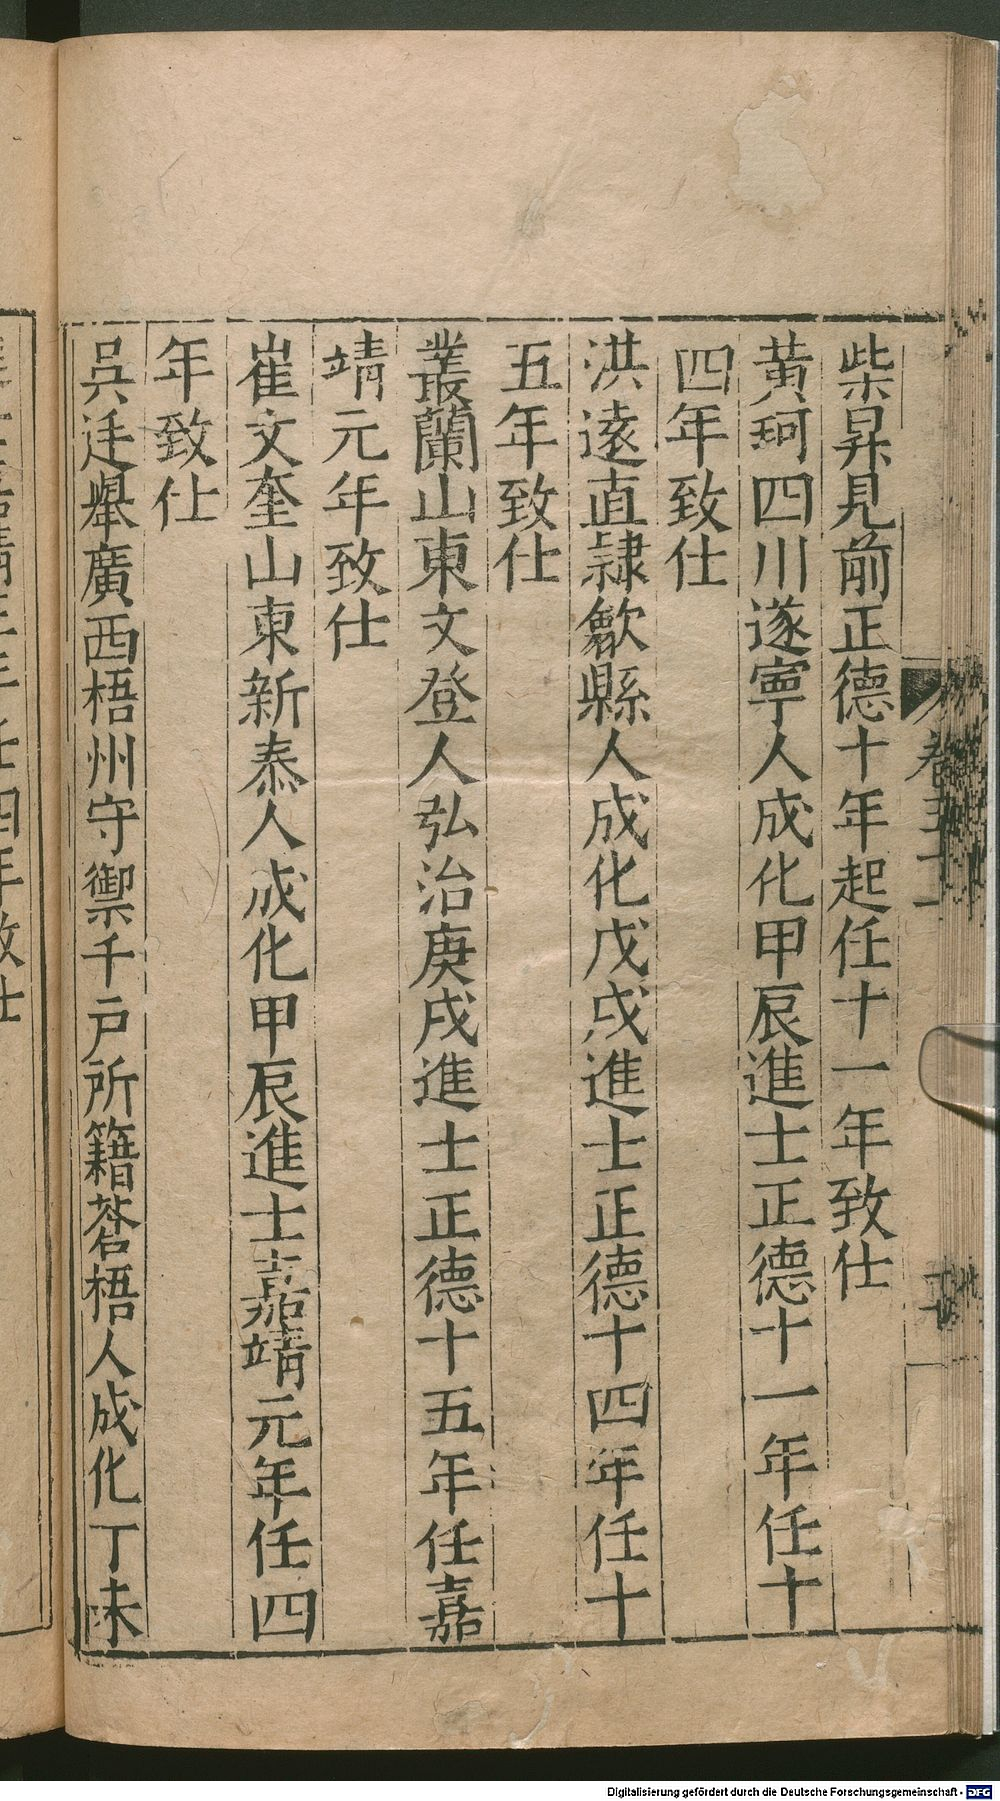 柴昇見前正德十年起任十一年致仕
黃珂四川遂寧人成化甲辰進士正德十一年任十
四年致仕
洪遠直隸歙縣人成化戊戌進士正德十四年任十
五年致仕
叢蘭山東文登人弘治庚戌進士正德十五年任嘉
靖元年致仕
崔文奎山東新泰人成化甲辰進士嘉靖元年任四
年致仕
吳廷舉廣西梧州守禦千戶所籍蒼梧人成化丁未
卷五十
四年致仕
Digitalisierung gefördert durch die Deutsche Forschungsgemeinschaft - DFG